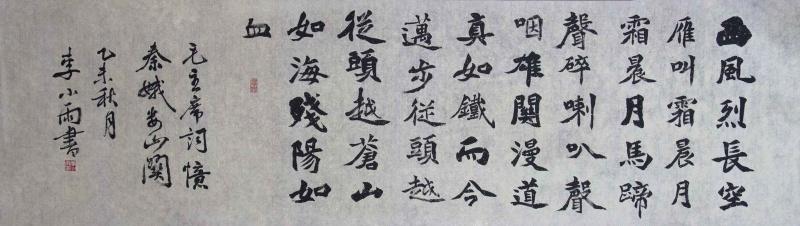 西風烈長空
雁叫霜晨月
霜晨月馬蹄
聲碎喇叭聲
咽雄關漫道
真如鐵而今
邁步從頭越
從頭越蒼山
如海殘陽如
血
毛主席詞憶
秦娥婁山關
乙未秋月
李小雨書